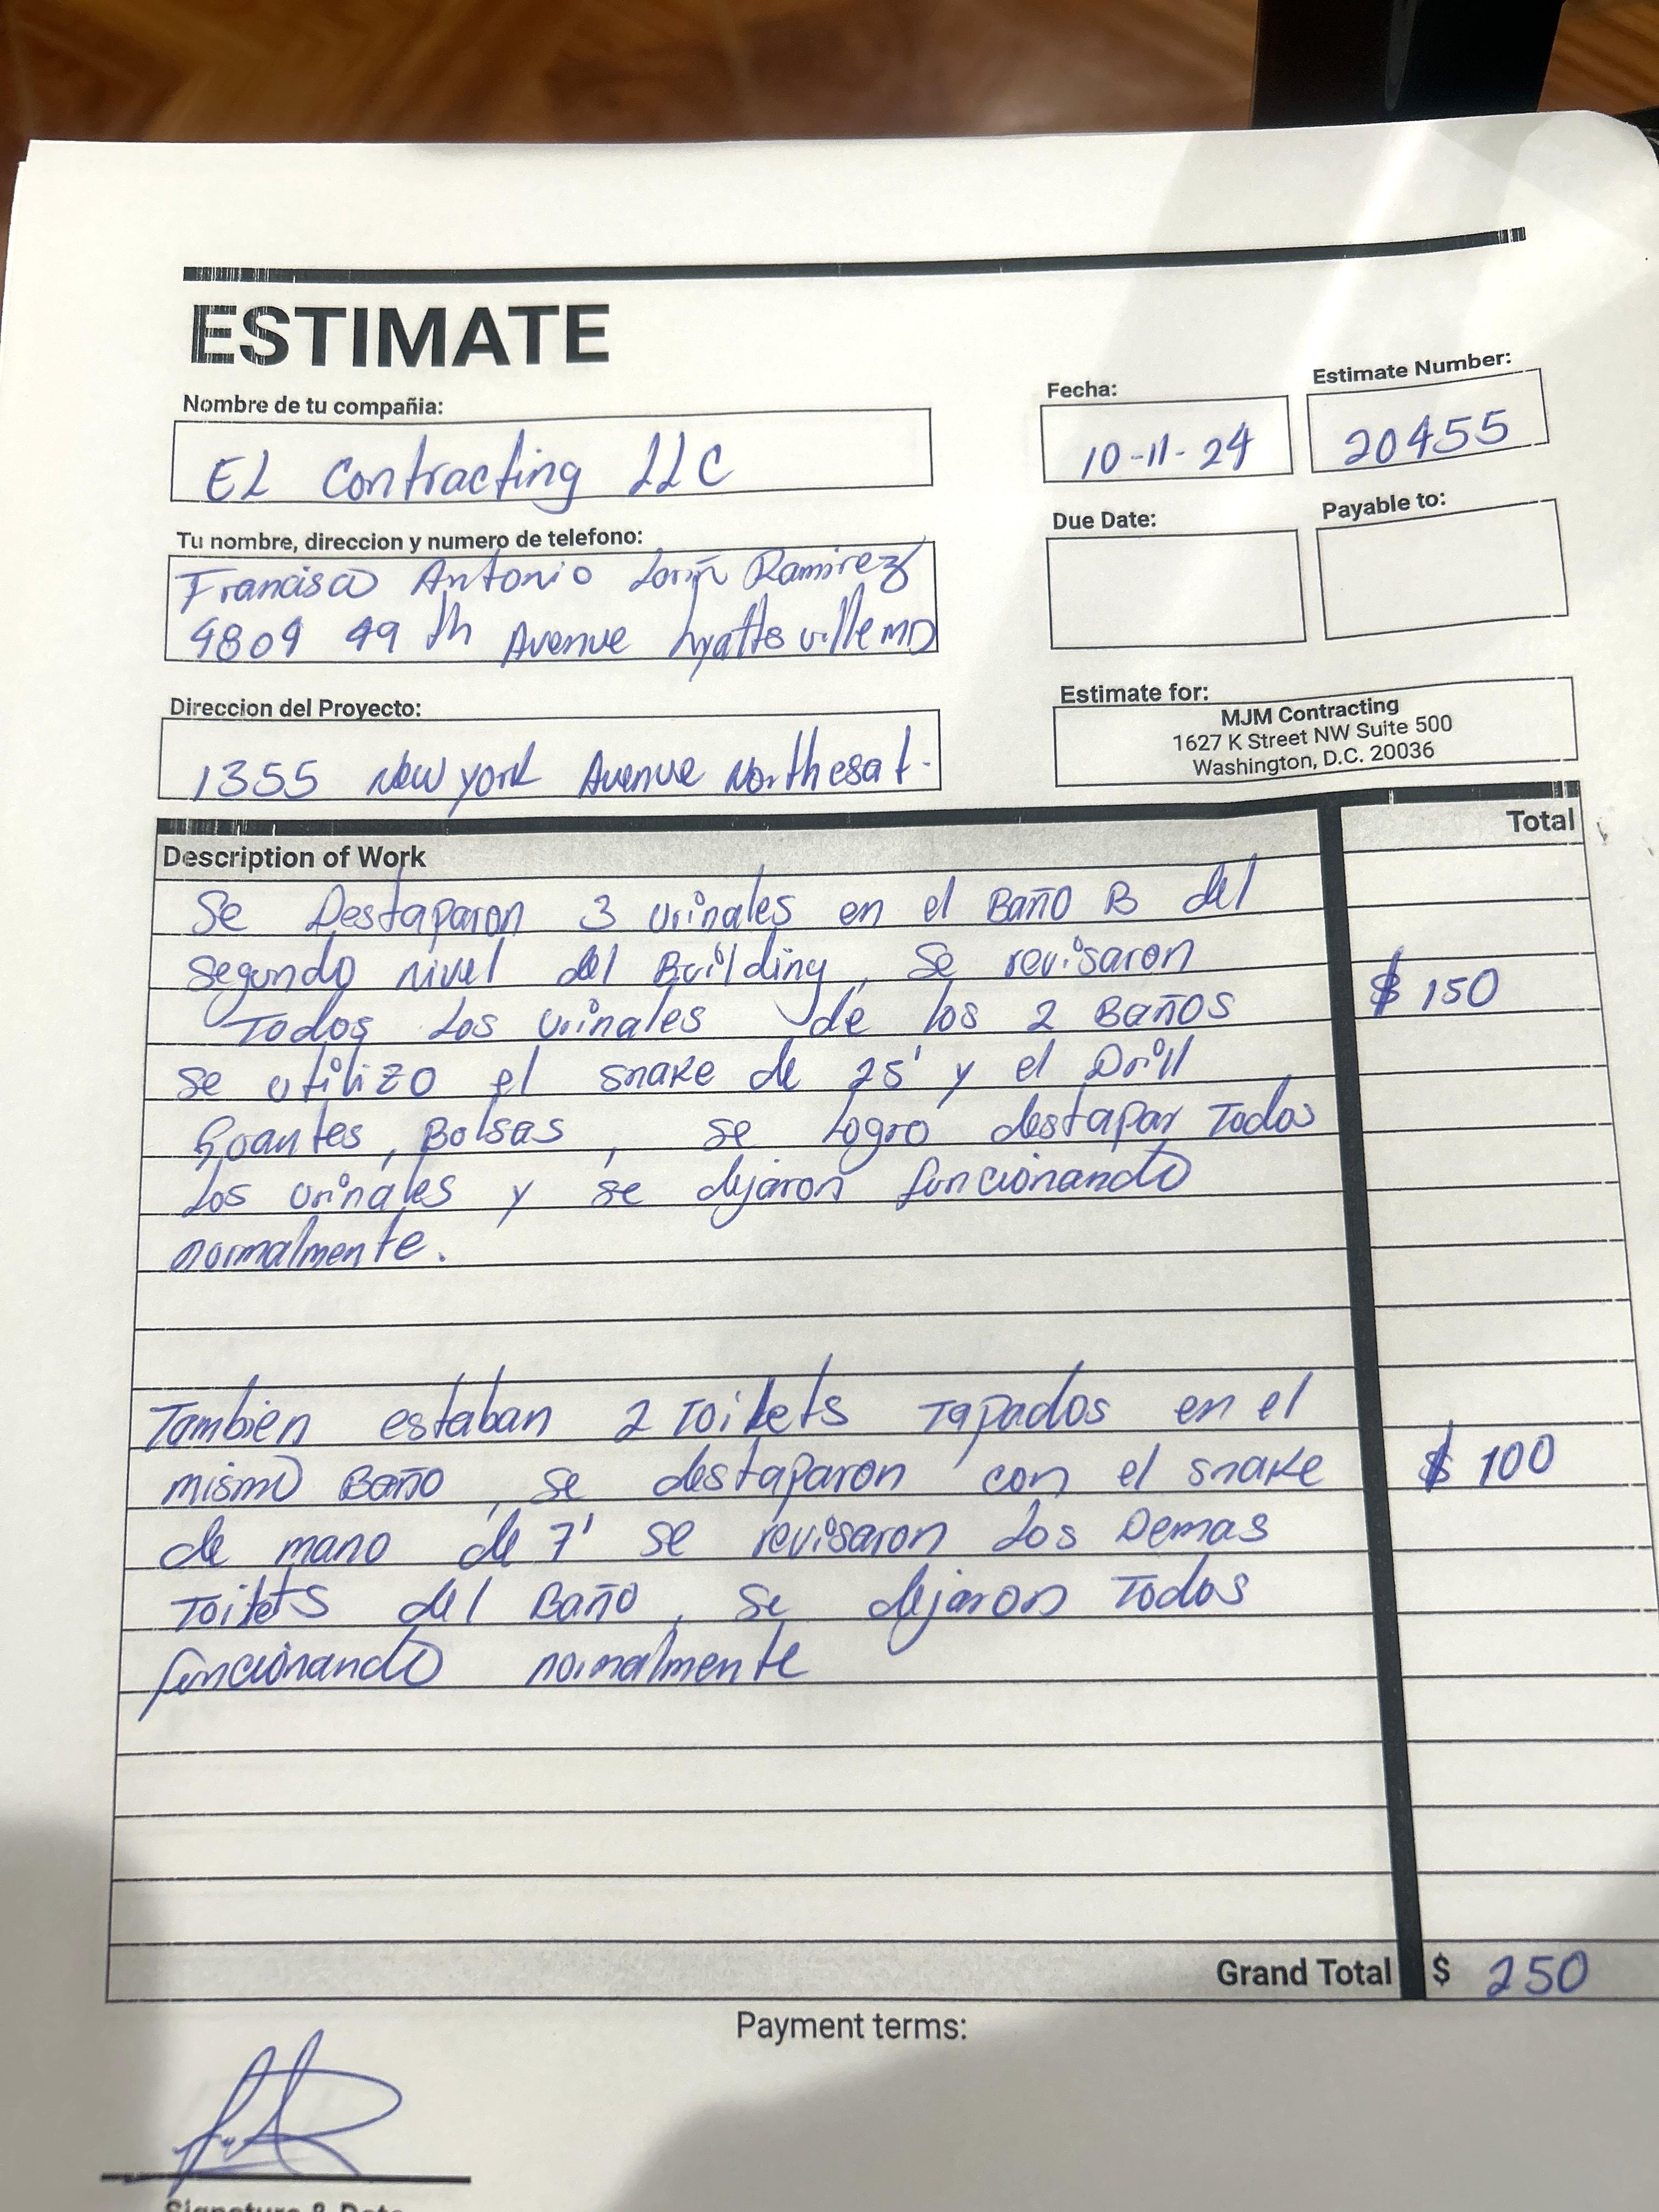 ESTIMATE
Nombre de tu compañia:
EL Contracting LLC
Fecha:
10-11-24
Estimate Number:
20455
Tu nombre, direccion y numero de telefono:
Francisco Antonio Ramirez
4809 49 th Avenue hyattsville MD
Due Date:
Payable to:
Direccion del Proyecto:
1355 New york Avenue Northesat.
Estimate for:
MJM Contracting
1627 K Street NW Suite 500
Washington, D.C. 20036
Description of Work
Total
Se Destaparon 3 urinales en el Baño B del
segundo nivel del Building, Se revisaron
Todos Los urinales de los 2 Baños
$ 150
se utilizo el snake de 25' y el Drill
Guantes, Bolsas, se logro destapar Todos
Los urinales y se dejaron funcionando
normalmente.
Tambien estaban 2 Toilets Tapados en el
mismo Baño, se destaparon con el snake
$ 100
de mano de 7' se revisaron Los Demas
Toilets del Baño, se dejaron Todos
funcionando normalmente
Grand Total $ 250
Payment terms:
Signature & Date